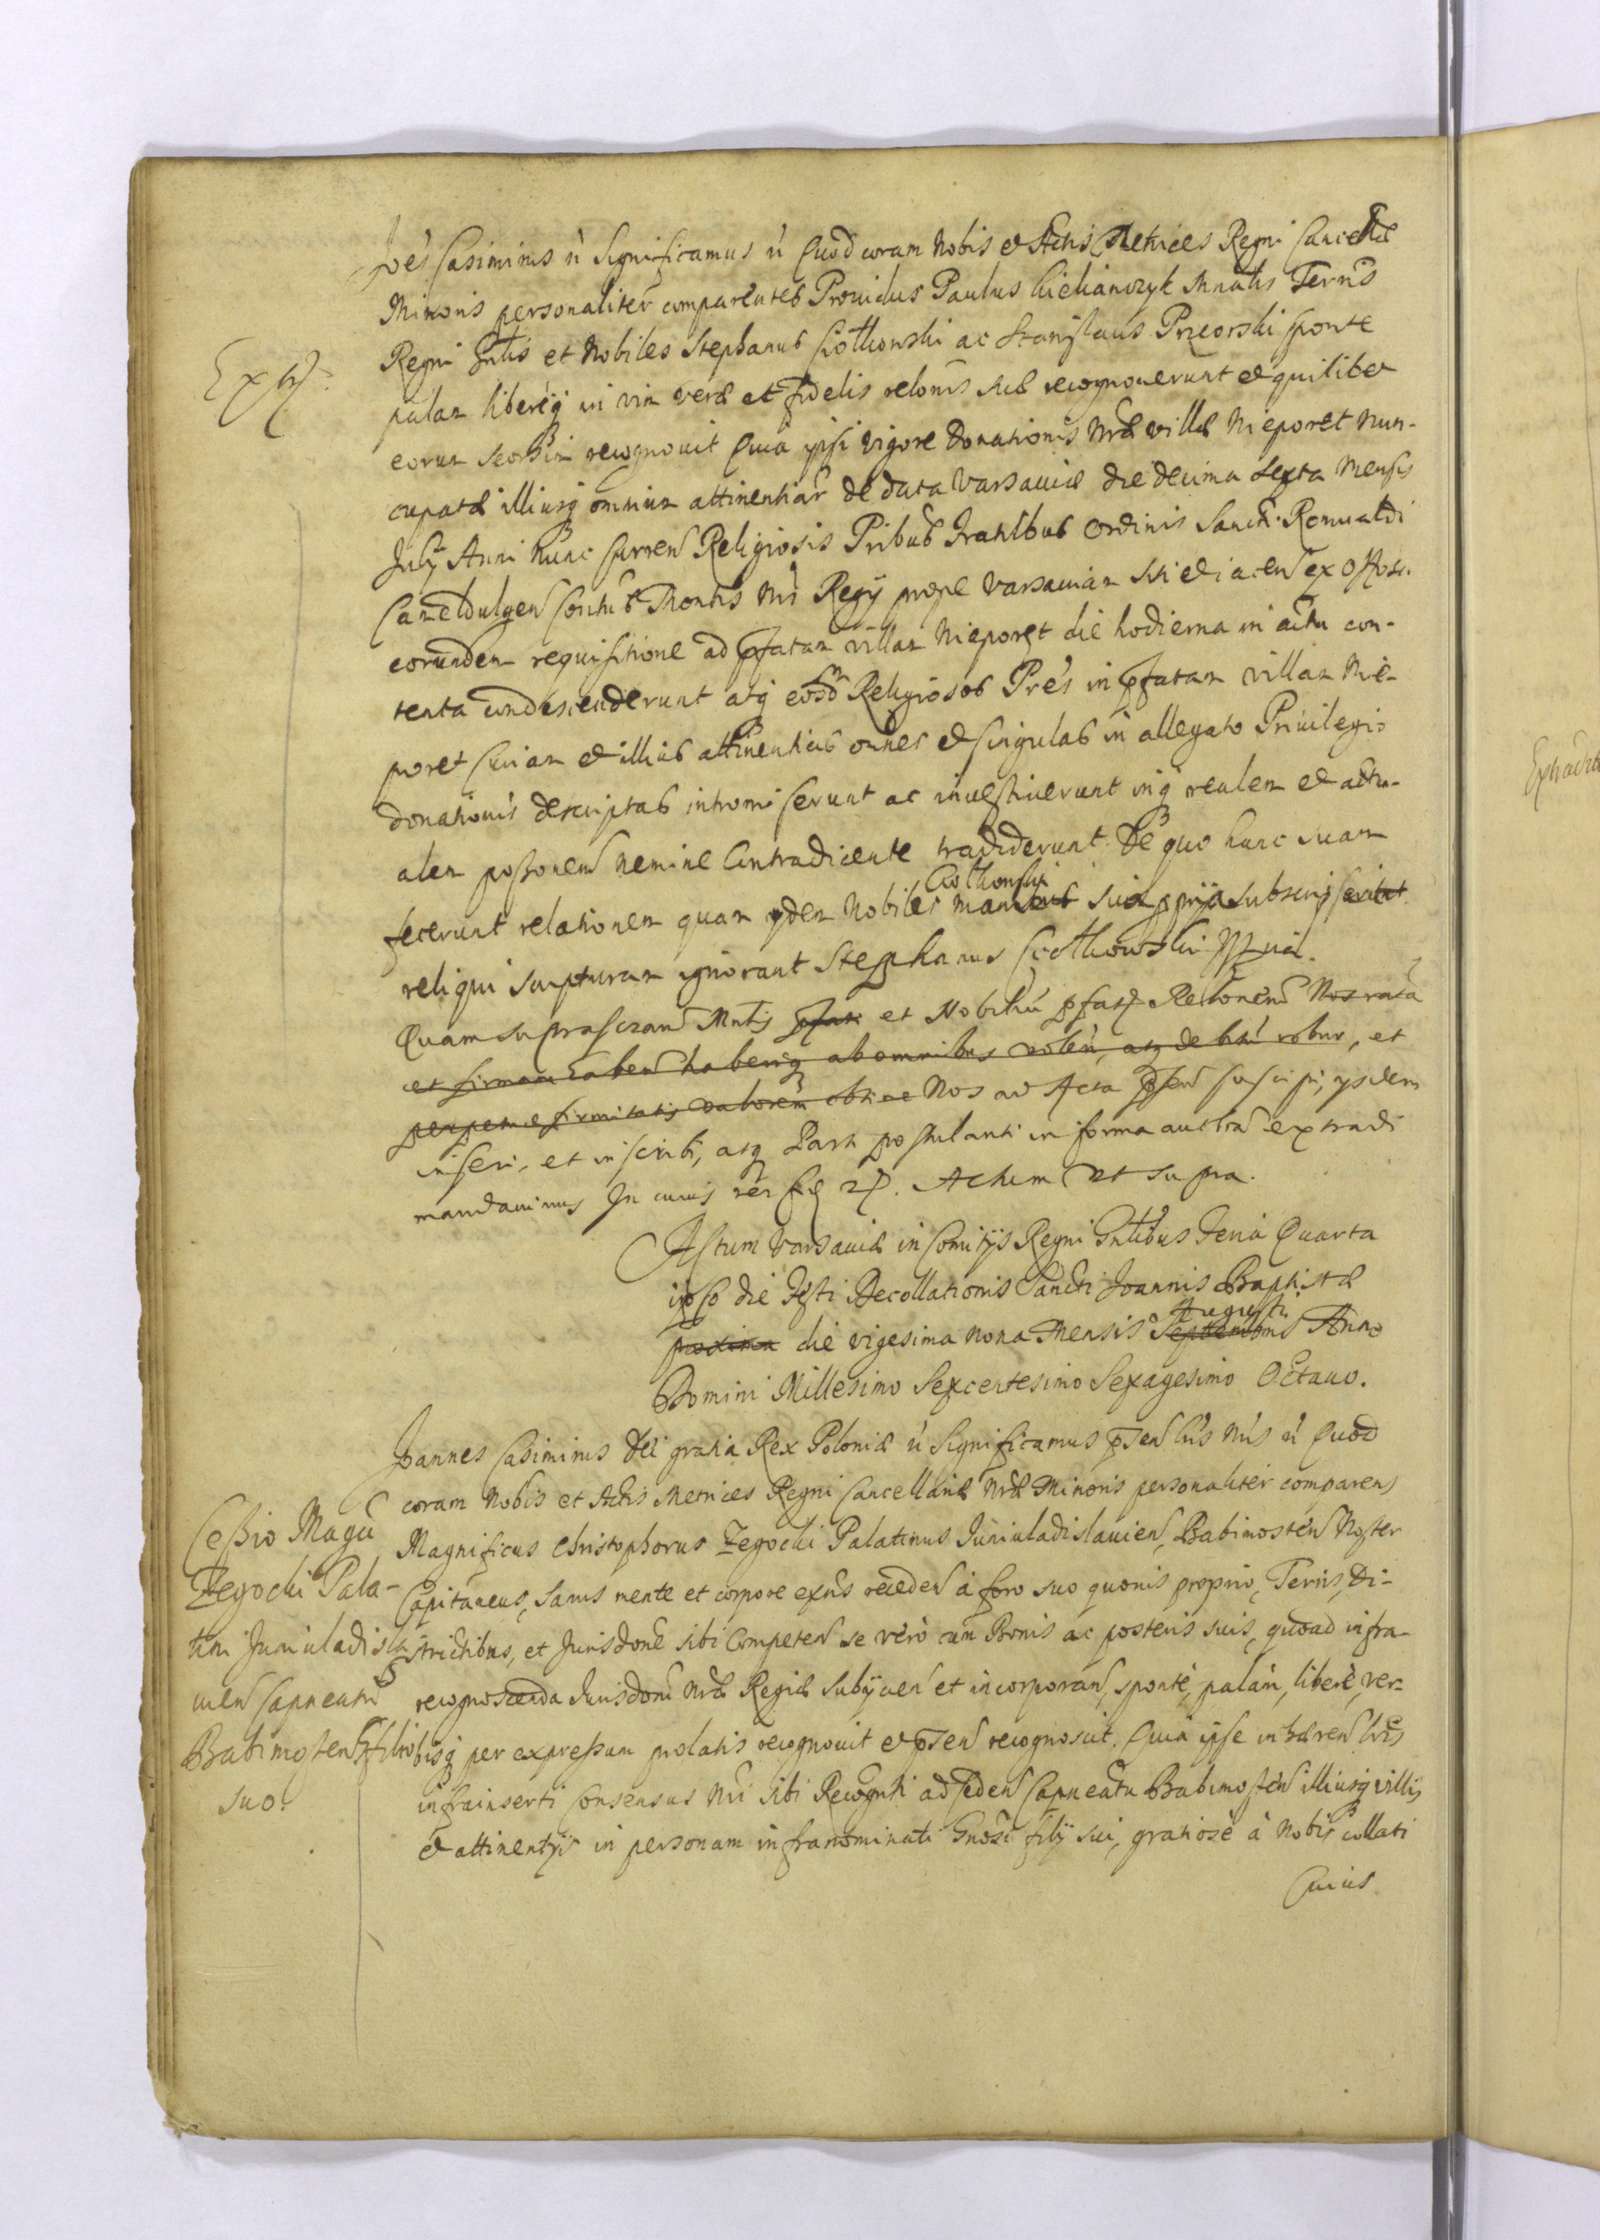 Joēs Casimirus ū Significamus ū Quod coram Nobis et Actis Metrices Regni Cancellae
Minoris personaliter comparentes Prouidus Paulus Kielianczyk Mnalis Terris
Regni Gnlis et Nobiles Stephanus Ciothowski ac Stanislaus Przeorski sponte
palam libereq in vim verae et fidelis relonis suae recognouerunt et quilibet
eorum seorsim recognouit Quia ipsi vigore Donationis Nrae villae Nieporet nun-
cupatae illiusq omnium attinentiar de data Varsauiae die decima sexta Mensis
July Anni hunc curren Religiosis Pribus Fratibus Ordinis Sancti Romualdi
Cameldulgen Conus Montis Nri Regij prope Varsauiam siti et iacen ex Offosa
eorundem requisitione ad pfatam villam Nieporet die hodierna in actu con-
tenta condescenderunt atq eosdm Religiosos Pres in pfatam villam Nie-
poret curiam et illius attinentias omnes et singulas in allegato Priuilegio
donationis descriptas intromiserunt ac inuestiuerunt inq realem et actu-
alem possonem nemine Contradicente tradiderunt. De quo hanc suam
fecerunt relationem quam ydem Nobiles Ciothowski manibus sua ppria subscripserunt
reliqui scripturam ignorant Stephanus Ciothowski Mpria.
Quam suprascram Mntis pfati et Nobiliu pfatr Relonem Nos rata
et firmam haben haberiq ab omnibus volen, atq debitu robur, et
perpetuae firmitatis valorem obtine Nos ad Acta psen suscipi, ysdem
inseri, et inscribi, atq Parti postulanti in forma auctcã extradi
mandauimus In cuius rei fid 2p. Actum Vt supra.
Actum Varsauiae in Comitijs Regni Gnlibus Feria Quarta
ipso die Festi Decollationis Sancti Joannis Baptistae
proxima die vigesima nona Mensis Septembris Augusti Anno
Domini Millesimo Sexcentesimo Sexagesimo Octauo.
Joannes Casimirus Dei gratia Rex Poloniae ū Significamus psen lris Nris ū Quod
coram Nobis et Actis Metrices Regni Cancellariae Nrae Minoris personaliter comparens
Magnificus Christophorus Zegocki Palatinus Juniuladislauien, Babimosten Noster
Capitaneus, sanus mente et corpore exns receden à foro suo quouis proprio, Terris, Di-
strictibus, et Jurisdone sibi Competen se verò cum Bonis ac posteris suis, quoad infra-
recognoscenda Jurisdoni Nrae Regiae subijcien et incorporan, sponte, palam, liberè, ver-
bisq per expressum prolatis recognouit et psen recognoscit. Quia ipse inhaeren lris
infrainserti Consensus Nri sibi Recognti ad ceden Capneatu Babimosten illiusq villis
et attinentijs in personam infranominati Gnosi filij sui, gratiosè à Nobis collati
Cuius
Cessio Magci
Zegocki Pala-
tini Juniuladisla
uien Capneatus
Babimosten filio
suo.